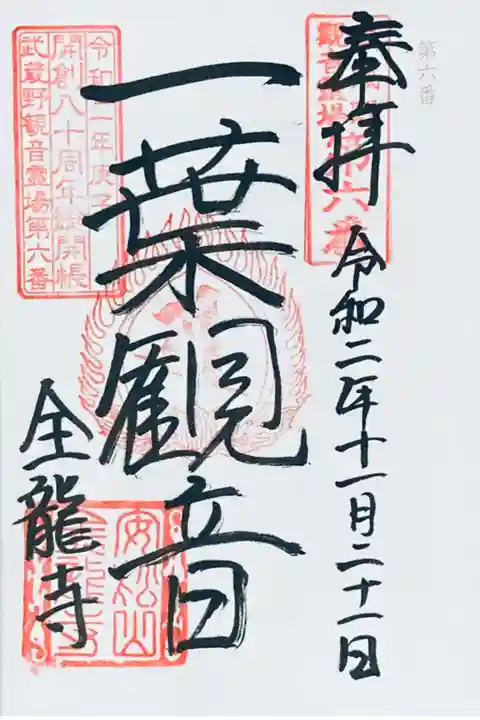 第六番
奉拝
令和二年十一月二十一日
第六番
一葉観音
令和二年庚子
開創八十周年御開帳
武蔵野観音霊場第六番
全龍寺
安松山